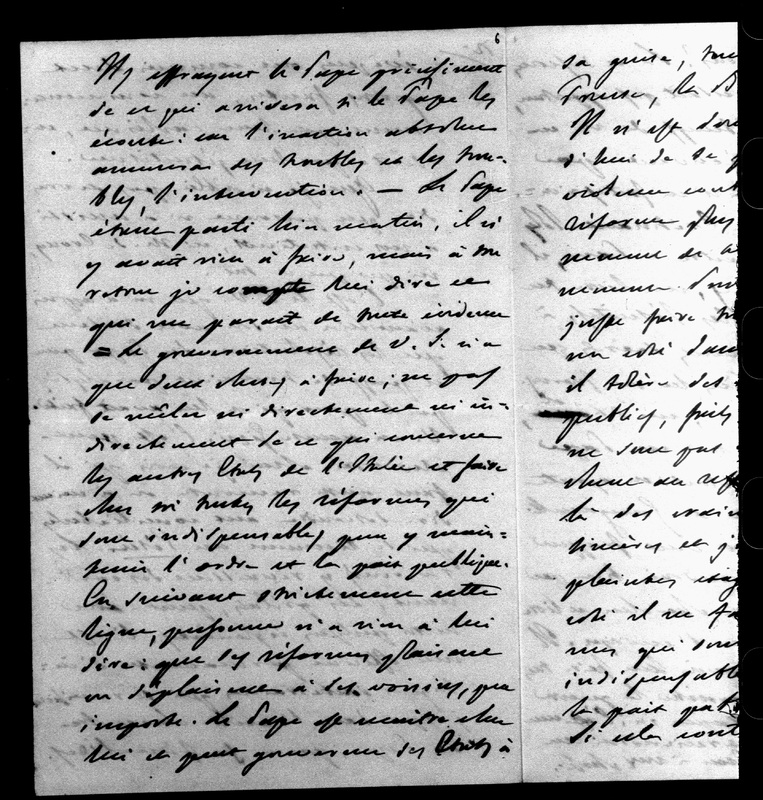 6
Ils effrayent le Pape précisément
de ce qui arrivera si le Pape les
écoute: car l'inaction absolue
amenera des troubles et les trou=
bles, l'intervention. — Le Pape
étant parti hier matin, il n'
y avait rien à faire, mais à son
retour je compte lui dire ce
qui me parait de toute évidence
= Le gouvernement de V. S. n'a
que deux choses à faire; ne pas
se mêler ni directement ni in=
directement de ce qui concerne
les autres Etats de l'Italie et faire
chez soi toutes les réformes qui
sont indispensables pour y main=
tenir l'ordre et la paix publique.
En suivant strictement cette
ligne, personne n'a rien à lui
dire: que ses réformes plaisent
ou déplaisent à ses voisins, peu
importe. Le Pape est maître chez
lui et peut gouverner ses Etats à
sa guise, tou
Prusse, la B
Il n'est don
si lui de se
violence cont
réforme plus
nement de
nement. Pou
juste faire
un coté dan
il tolère des
publics, faits
ne sont pas
chent au
là des vrais
sincères et j
plaintes
coté il ne fa
mes qui son
indispensable
la paix pub
Si cela cont